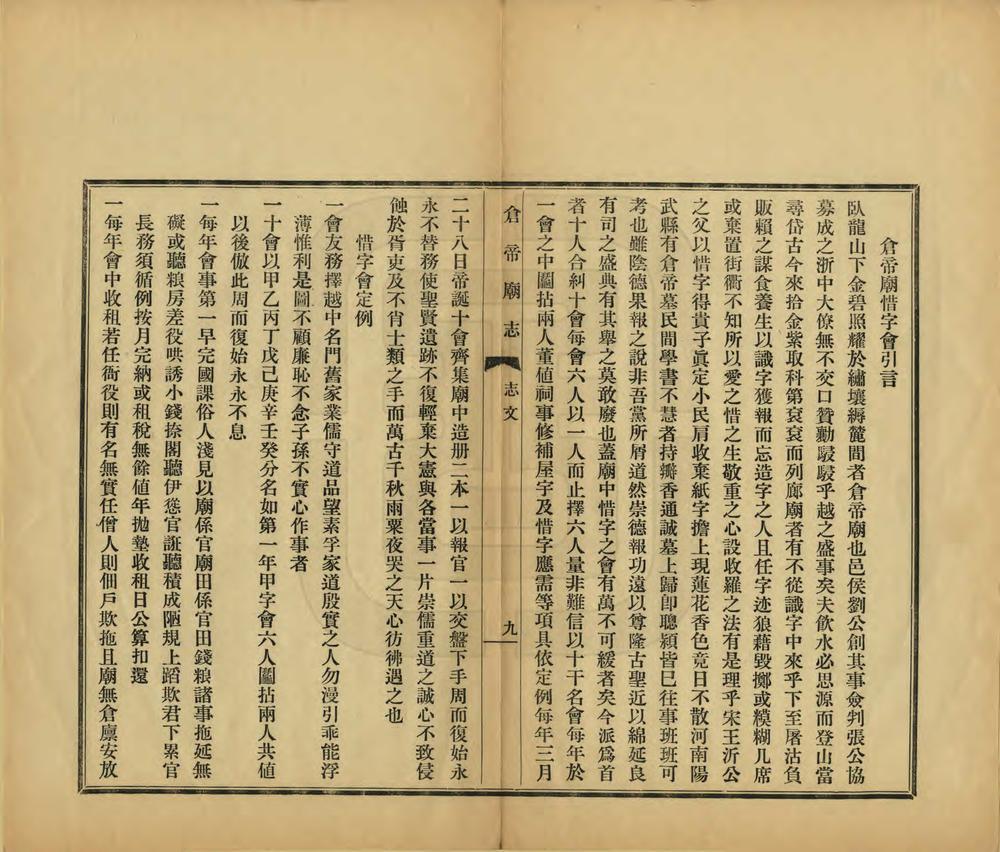 倉帝廟惜字會引言
臥龍山下金碧照耀於繡壤縟麓間者倉帝廟也邑侯劉公創其事僉判張公協
募成之浙中大僚無不交口贊勷駸駸乎越之盛事矣夫飲水必思源而登山當
尋岱古今來拾金紫取科第袞袞而列廊廟者有不從識字中來乎下至屠沽負
販賴之謀食養生以識字獲報而忘造字之人且任字迹狼藉毀擲或糢糊几席
或棄置街衢不知所以愛之惜之生敬重之心設收羅之法有是理乎宋王沂公
之父以惜字得貴子眞定小民肩收棄紙字擔上現蓮花香色竞日不散河南陽
武縣有倉帝墓民間學書不慧者持瓣香通誠墓上歸卽聰穎皆巳往事班班可
考也雖陰德果報之說非吾黨所屑道然崇德報功遠以尊隆古聖近以綿延良
有司之盛典有其舉之莫敢廢也蓋廟中惜字之會有萬不可緩者矣今派爲首
者十人合糾十會每會六人以一人而止擇六人量非難信以十干名會每年於
一會之中鬮拈兩人董値祠事修補屋宇及惜字應需等項具依定例每年三月
倉帝廟志
志文
九
二十八日帝誕十會齊集廟中造册二本一以報官一以交盤下手周而復始永
永不替務使聖賢遺跡不復輕棄大憲與各當事一片崇儒重道之誠心不致侵
蝕於胥吏及不肖士類之手而萬古千秋雨粟夜哭之天心彷彿遇之也
惜字會定例
一會友務擇越中名門舊家業儒守道品望素孚家道殷實之人勿漫引乖能浮
薄惟利是圖不顧廉恥不念子孫不實心作事者
一十會以甲乙丙丁戊己庚辛壬癸分名如第一年甲字會六人鬮拈兩人共値
以後倣此周而復始永永不息
一每年會事第一早完國課俗人淺見以廟係官廟田係官田錢粮諸事拖延無
礙或聽粮房差役哄誘小錢捺閣聽伊慫官誑聽積成陋規上蹈欺君下累官
長務須循例按月完納或租稅無餘値年拋墊收租日公算扣還
一每年會中收租若任衙役則有名無實任僧人則佃戶欺拖且廟無倉廩安放